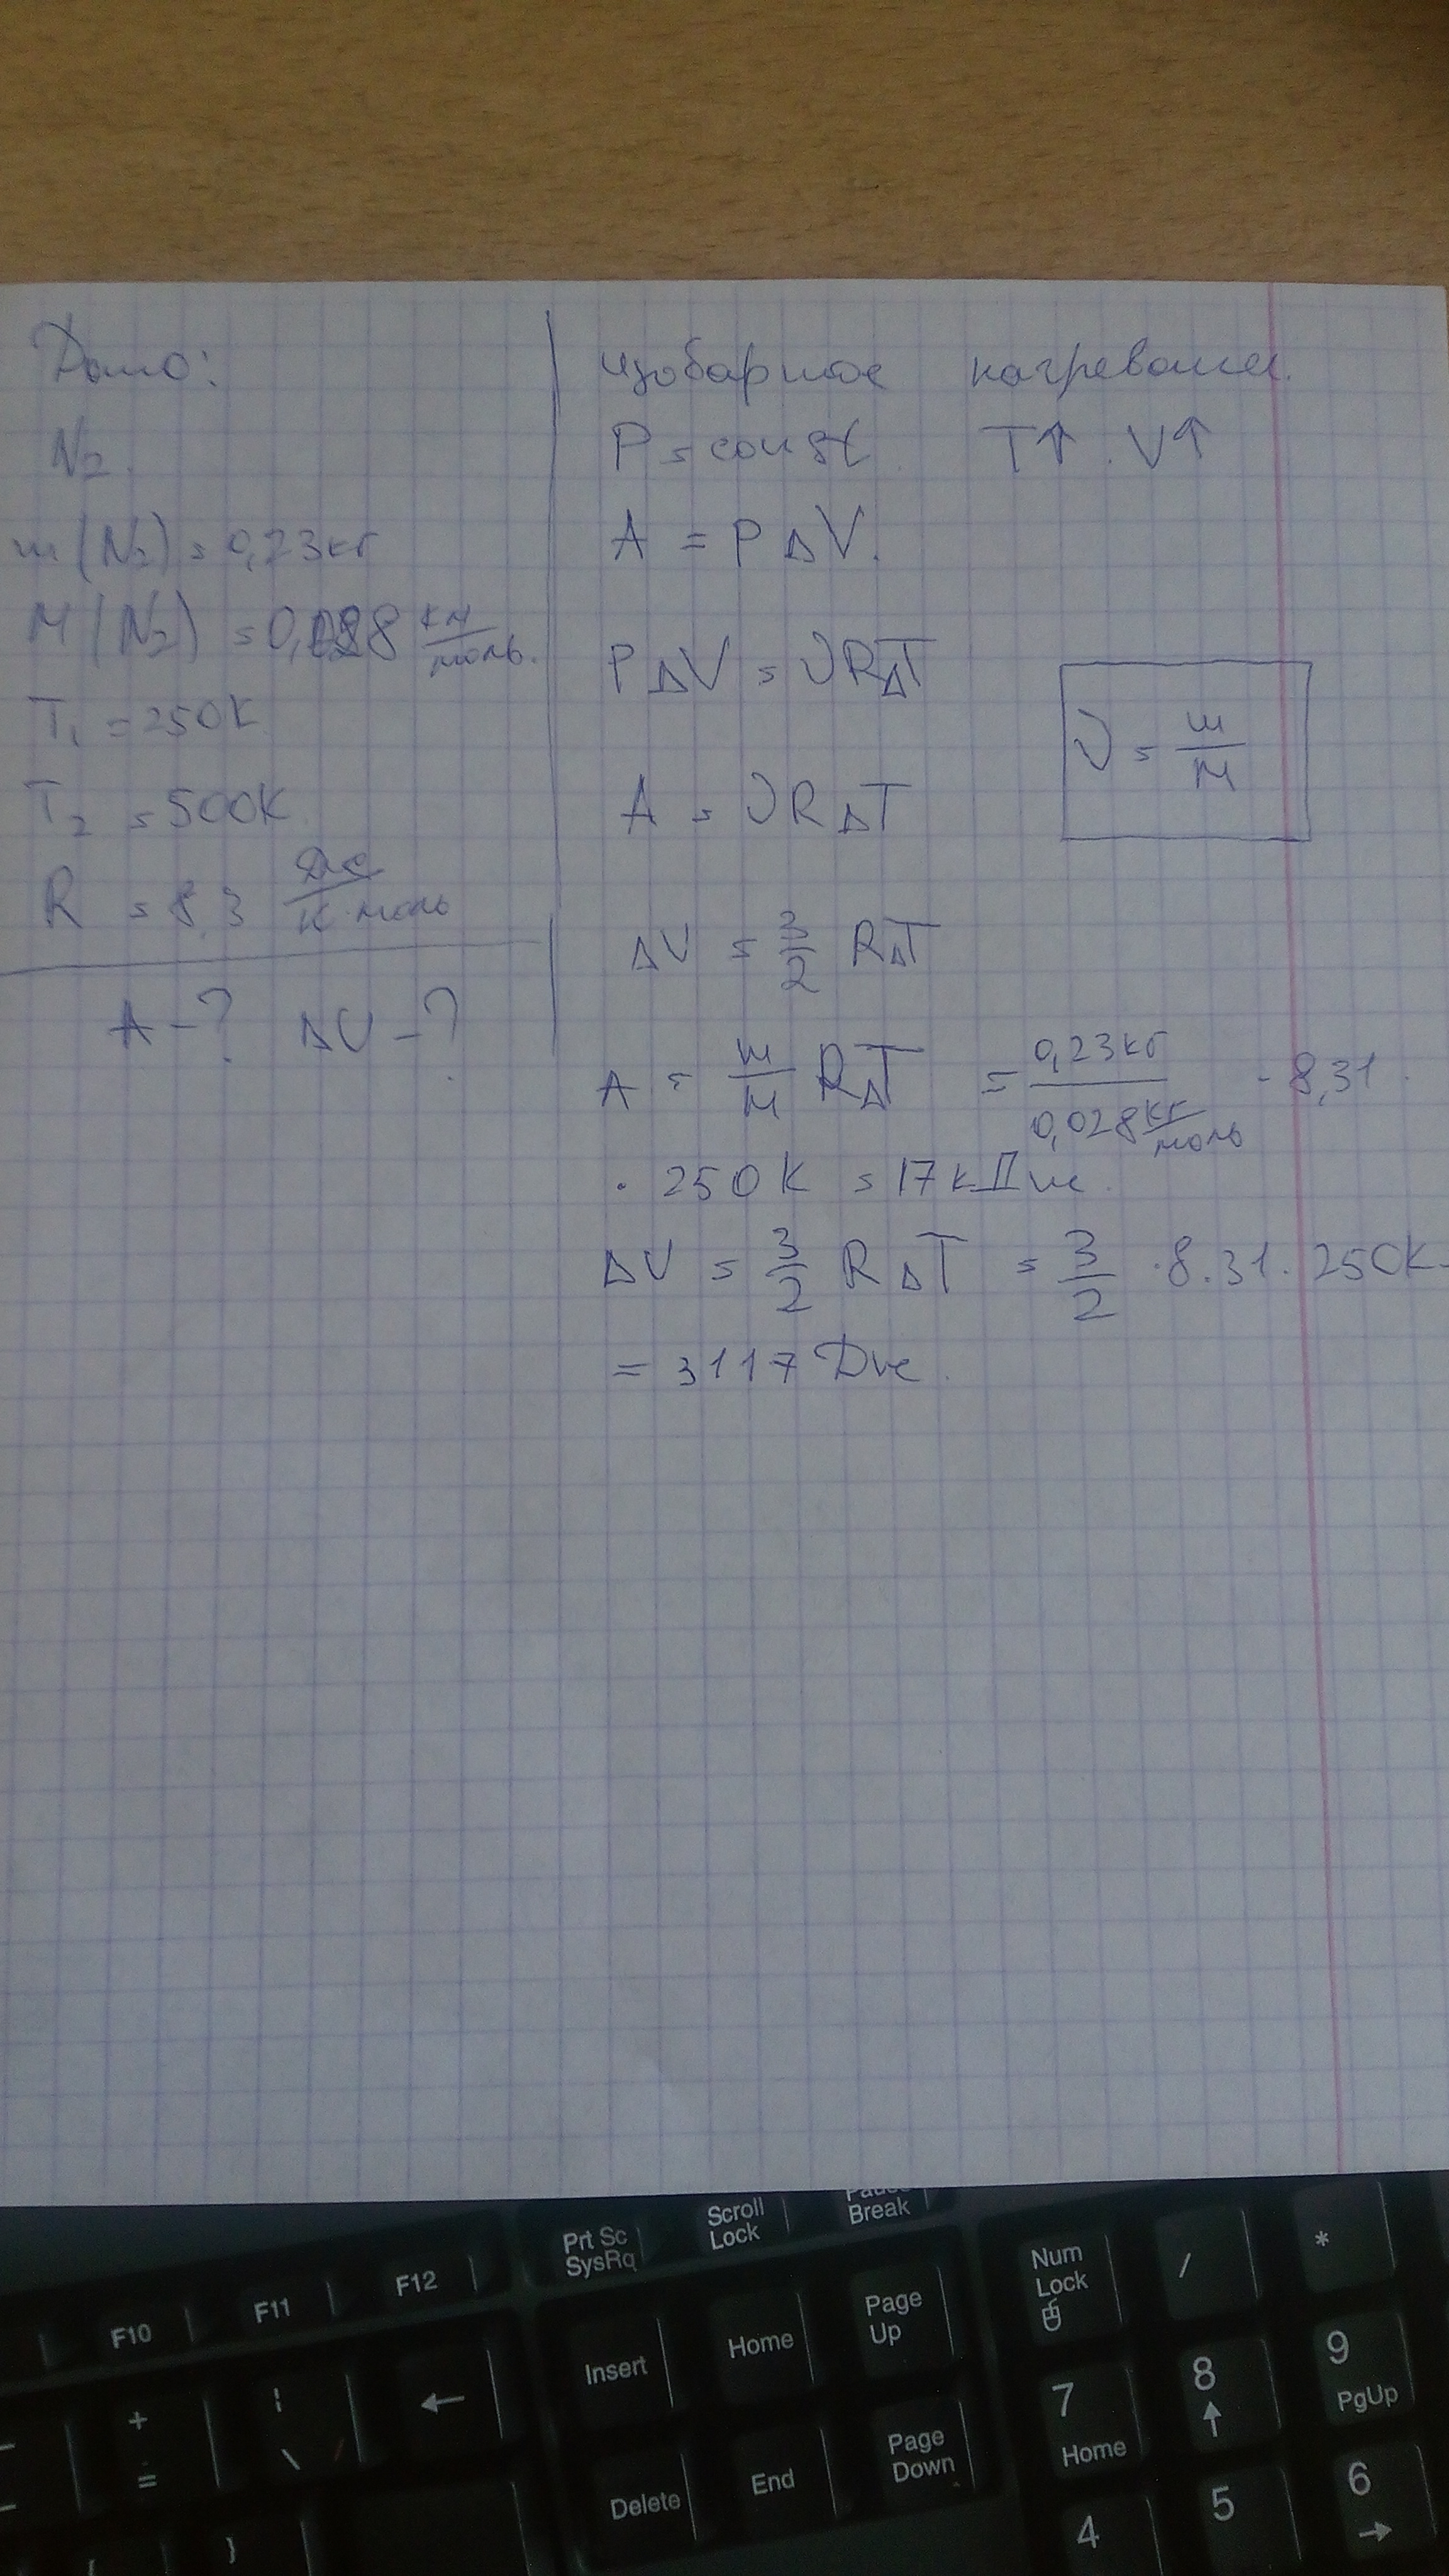 Дано:
N₂.
m(N₂) = 0,23кг
M(N₂) = 0,028 кг/моль.
T₁ = 250K
T₂ = 500K
R = 8,3 Дж/К·моль
A - ? ΔU - ?
изобарное нагревание.
P = const T↑. V↑
A = PΔV.
PΔV = νRΔT
ν = m/M
A = νRΔT
ΔU = 3/2 RΔT
A = m/M RΔT = 0,23кг / 0,028 кг/моль · 8,31 ·
· 250K = 17кДж.
ΔU = 3/2 RΔT = 3/2 · 8.31 · 250K =
= 3117 Дж.
Prt Sc
SysRq
Scroll
Lock
Pause
Break
F10
F11
F12
Insert
Home
Page
Up
Num
Lock
/
*
+
=
¦
\
←
Delete
End
Page
Down
7
Home
8
↑
9
PgUp
4
5
6
→
}
{